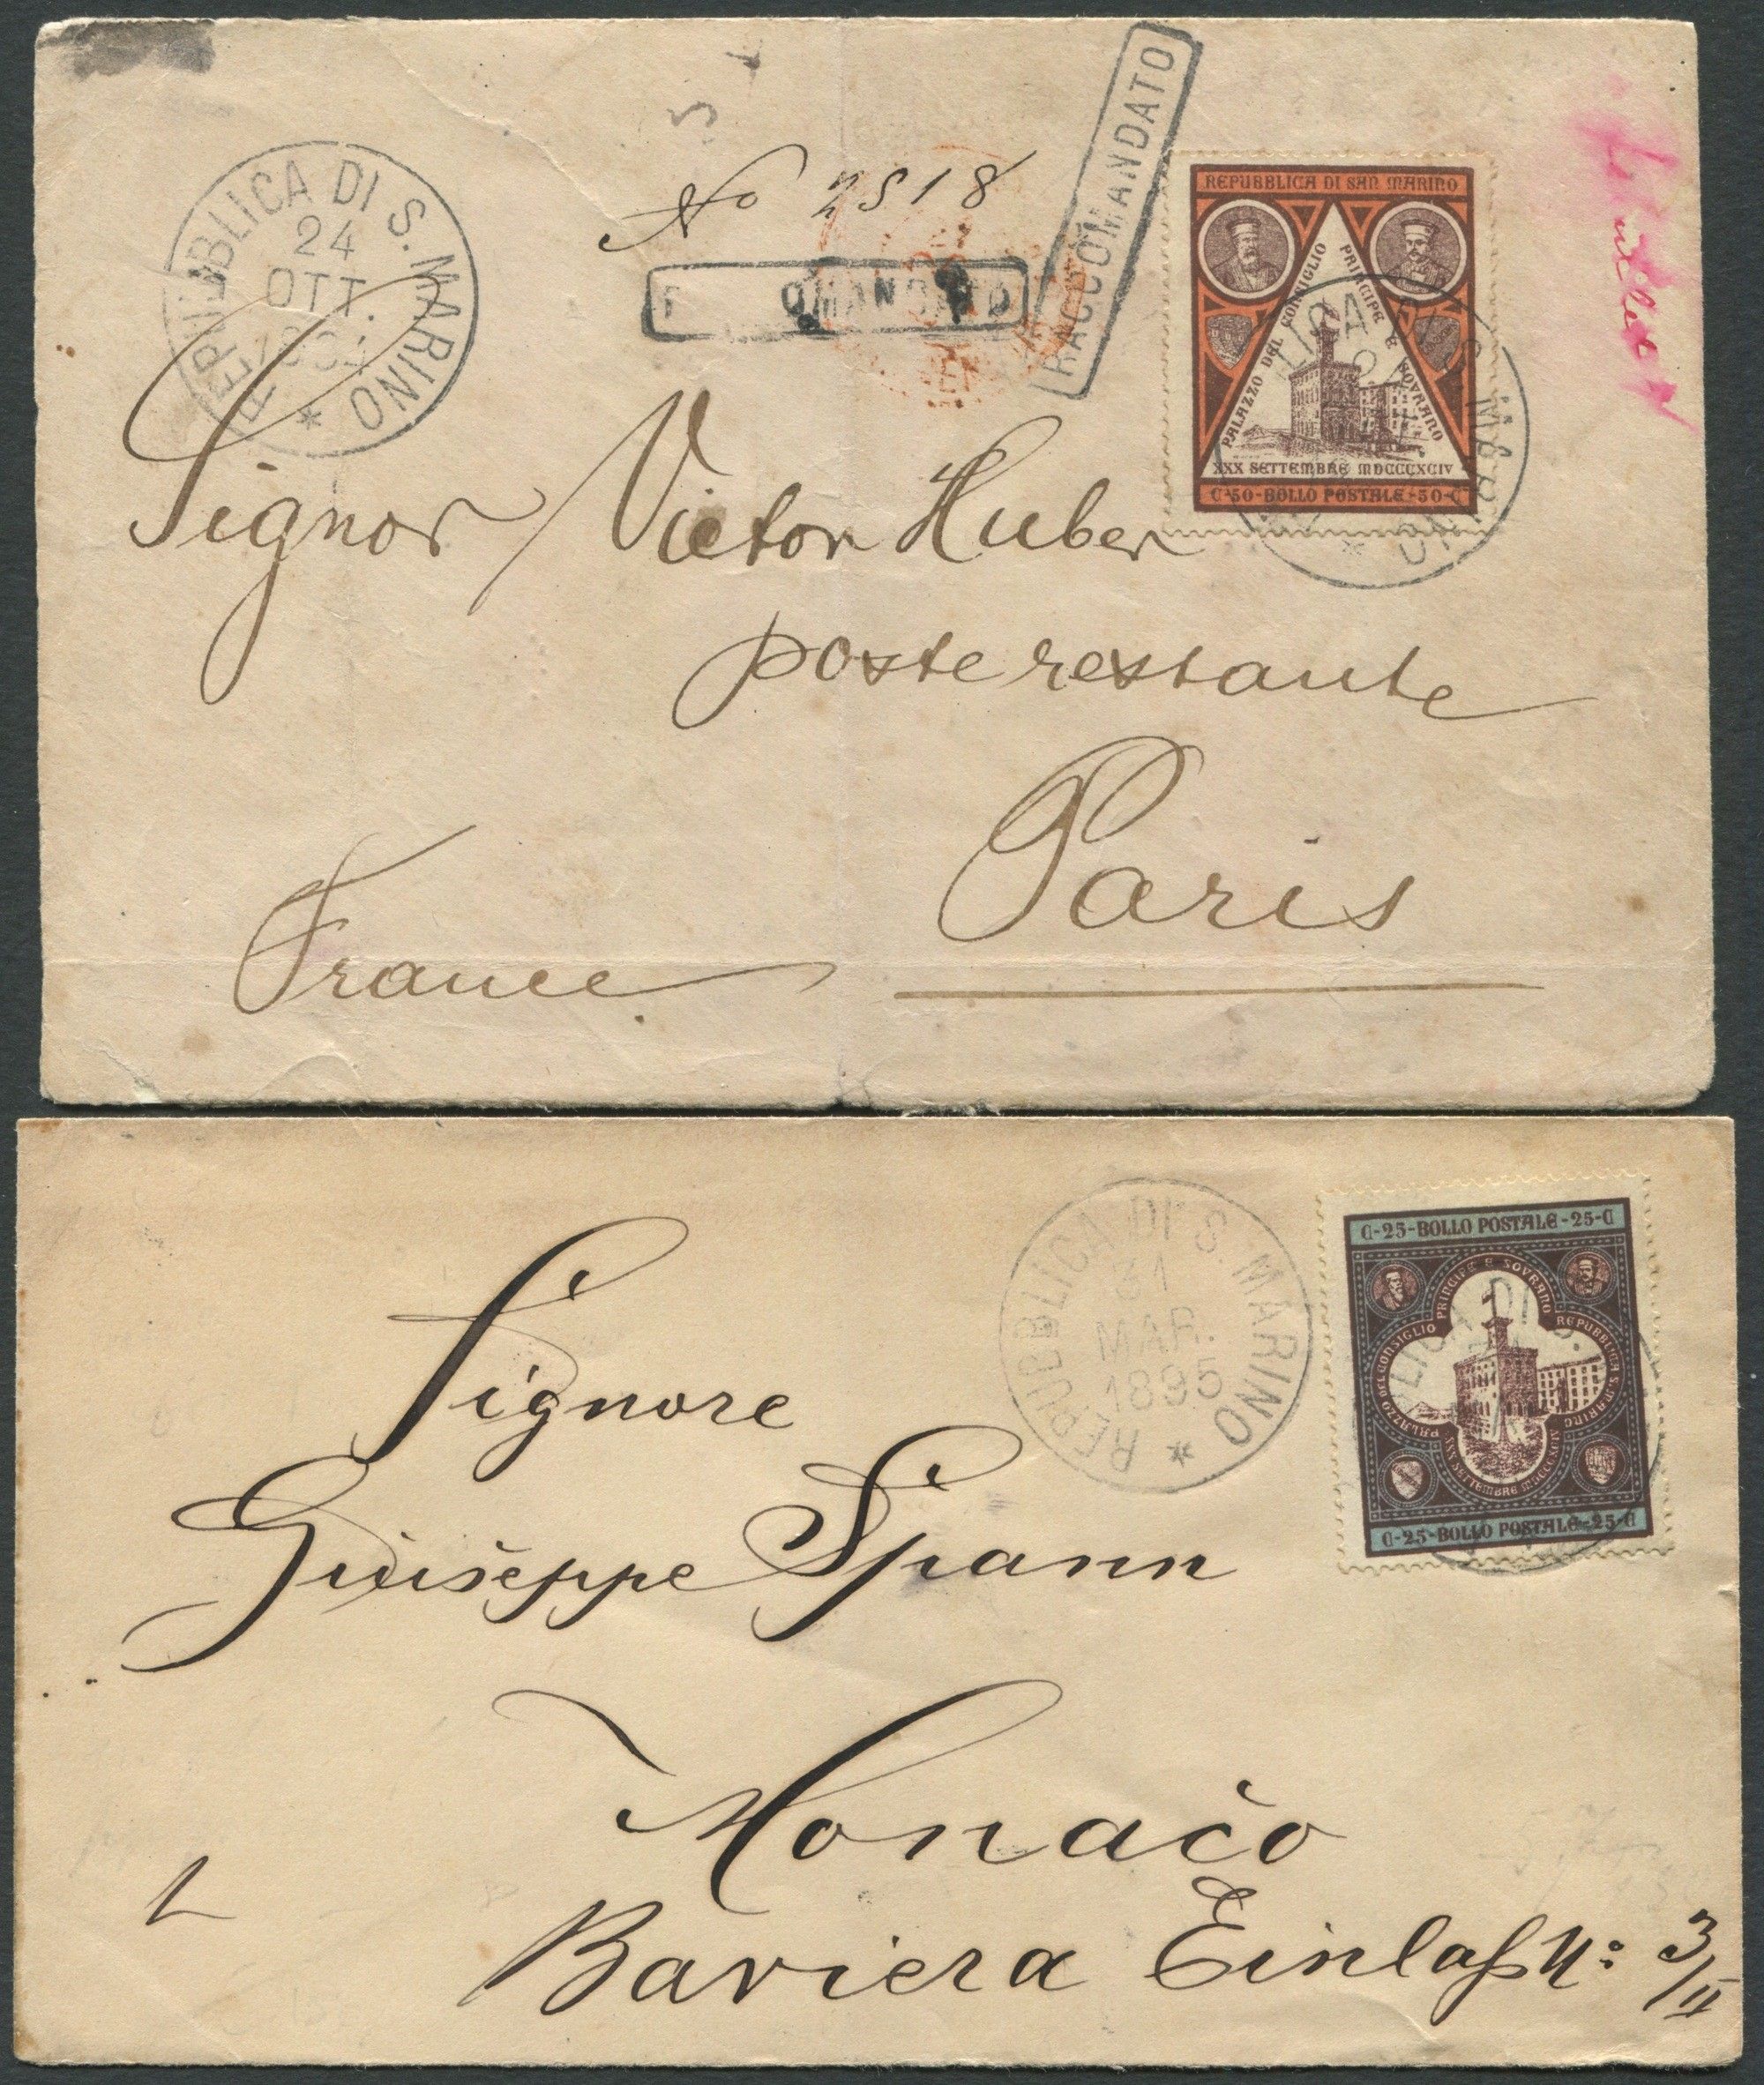 REPUBBLICA DI S. MARINO
24
OTT.
No 2518
RACCOMANDATO
RACCOMANDATO
REPUBBLICA DI SAN MARINO
PALAZZO DEL CONSIGLIO PRINCIPE E SOVRANO
XXX SETTEMBRE MDCCCXCIV
C-50-BOLLO POSTALE-50-C
Signor Victor Huber
poste restante
Paris
France
REPUBBLICA DI S. MARINO
31
MAR.
1895
C-25-BOLLO POSTALE-25-C
PALAZZO DEL CONSIGLIO PRINCIPE E SOVRANO REPUBBLICA S. MARINO
XXX SETTEMBRE MDCCCXCIV
C-25-BOLLO POSTALE-25-C
Signore
Giuiseppe Spann
Monaco
Baviera Einlaß N: 3/II